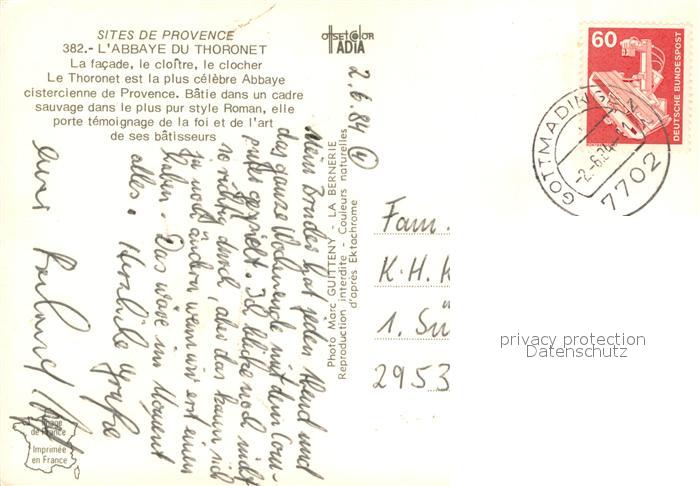 SITES DE PROVENCE
382.- L'ABBAYE DU THORONET
La façade, le cloître, le clocher
Le Thoronet est la plus célèbre Abbaye
cistercienne de Provence. Bâtie dans un cadre
sauvage dans le plus pur style Roman, elle
porte témoignage de la foi et de l'art
de ses bâtisseurs
offset color
ADIA
2.6.84
Mein Bruder hat jeden Abend und
das ganze Wochenende mit dem Com-
puter gespielt. Ich blicke noch nicht
so richtig durch, aber das kann sich
ja noch ändern wenn wir erst einen
haben. Das wäre im Moment
alles. Herzliche Grüße
Photo Marc GUITTENY - LA BERNERIE
Reproduction interdite - Couleurs naturelles
d'après Ektachrome
Image
de France
Imprimée
en France
60
DEUTSCHE BUNDESPOST
GOTTMADINGEN
-2.-6.84
7702
Fam.
K.H.
1. Sü
2953
privacy protection
Datenschutz